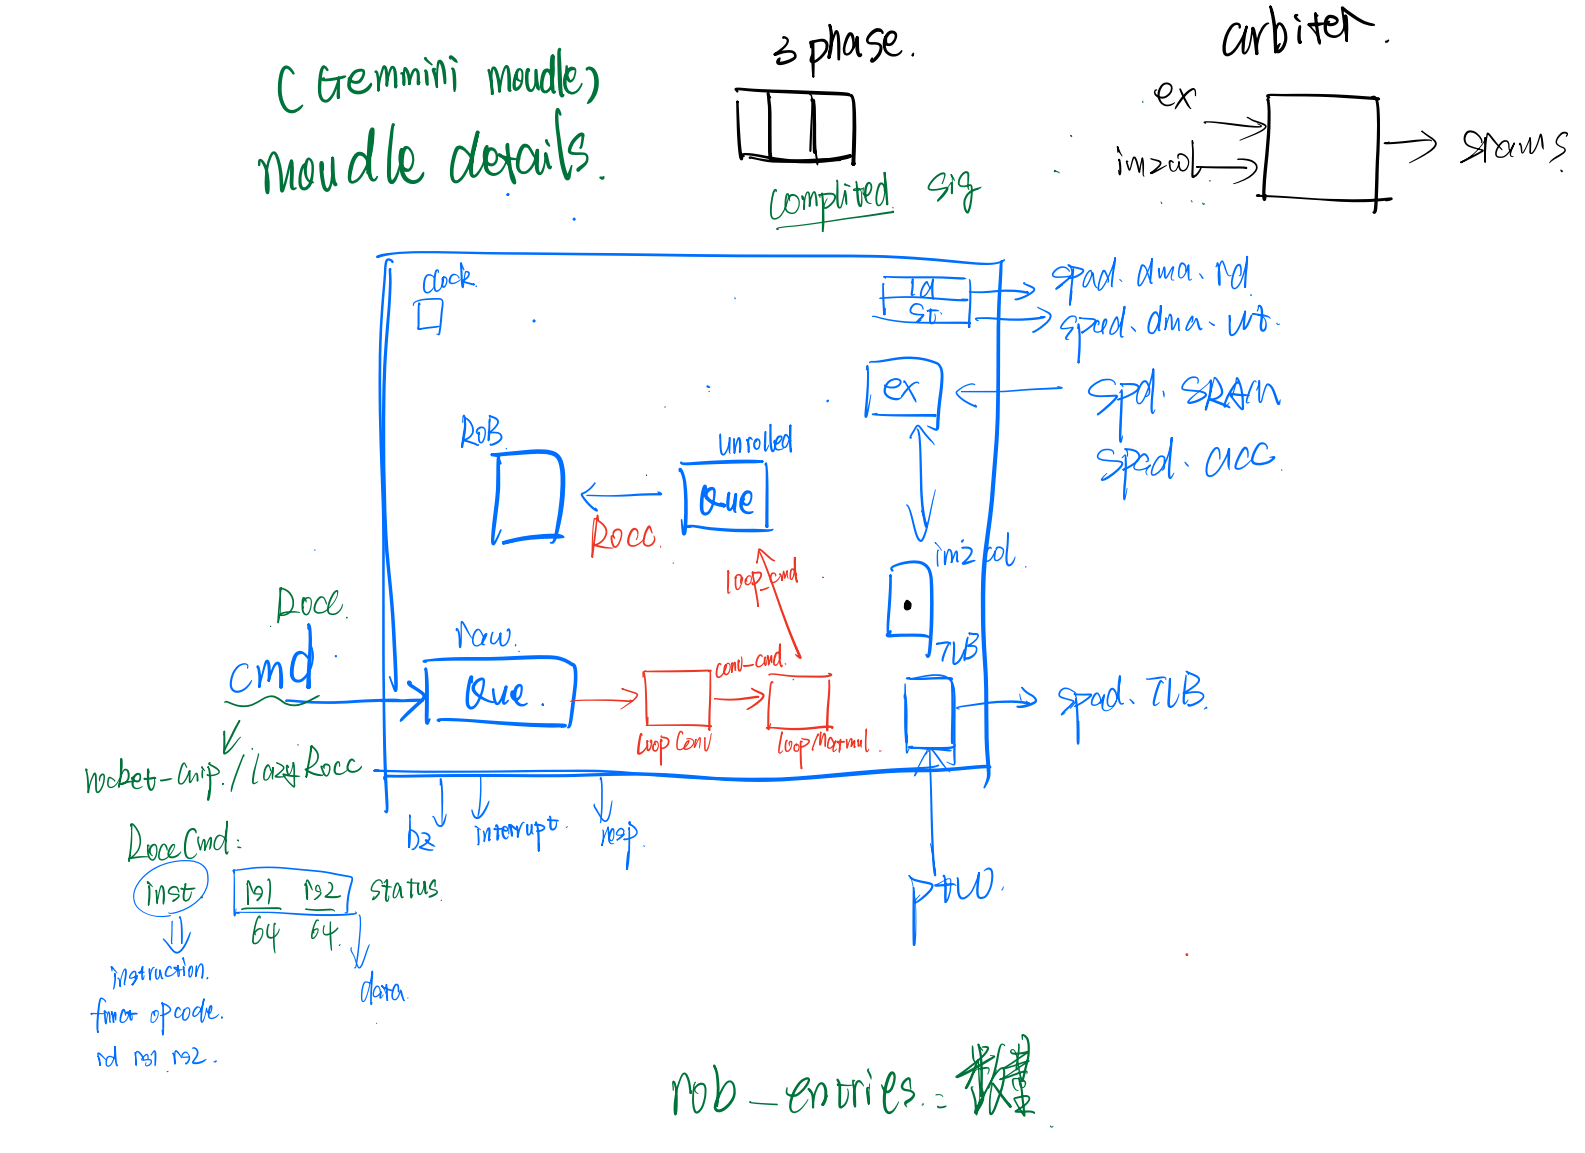 (Gemmini moudle)
moudle details.
3 phase.
complited sig
arbiter.
ex
im2col
srams
clock
ld
st
spad. dma. rd
spad. dma. wt.
ex
spd. SRAM
spad. acc
ROB
unrolled
Que
Rocc.
loop_cmd
im2col
Rocc
cmd
raw.
Que.
conv-cmd
loop Conv
loop/Matmul.
TLB
spad. TLB.
rocket-chip./lazyRocc
bz
interrupt.
resp.
ptw.
RoccCmd:
inst rs1 rs2 status
64 64
instruction.
funct opcode.
rd rs1 rs2.
data
rob_entries = 数量